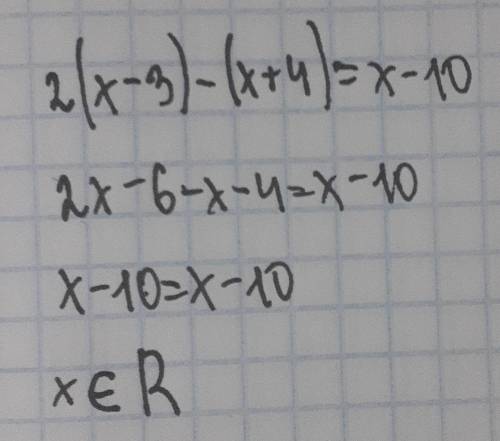 2(x-3)-(x+4)=x-10
2x-6-x-4=x-10
x-10=x-10
x∈R